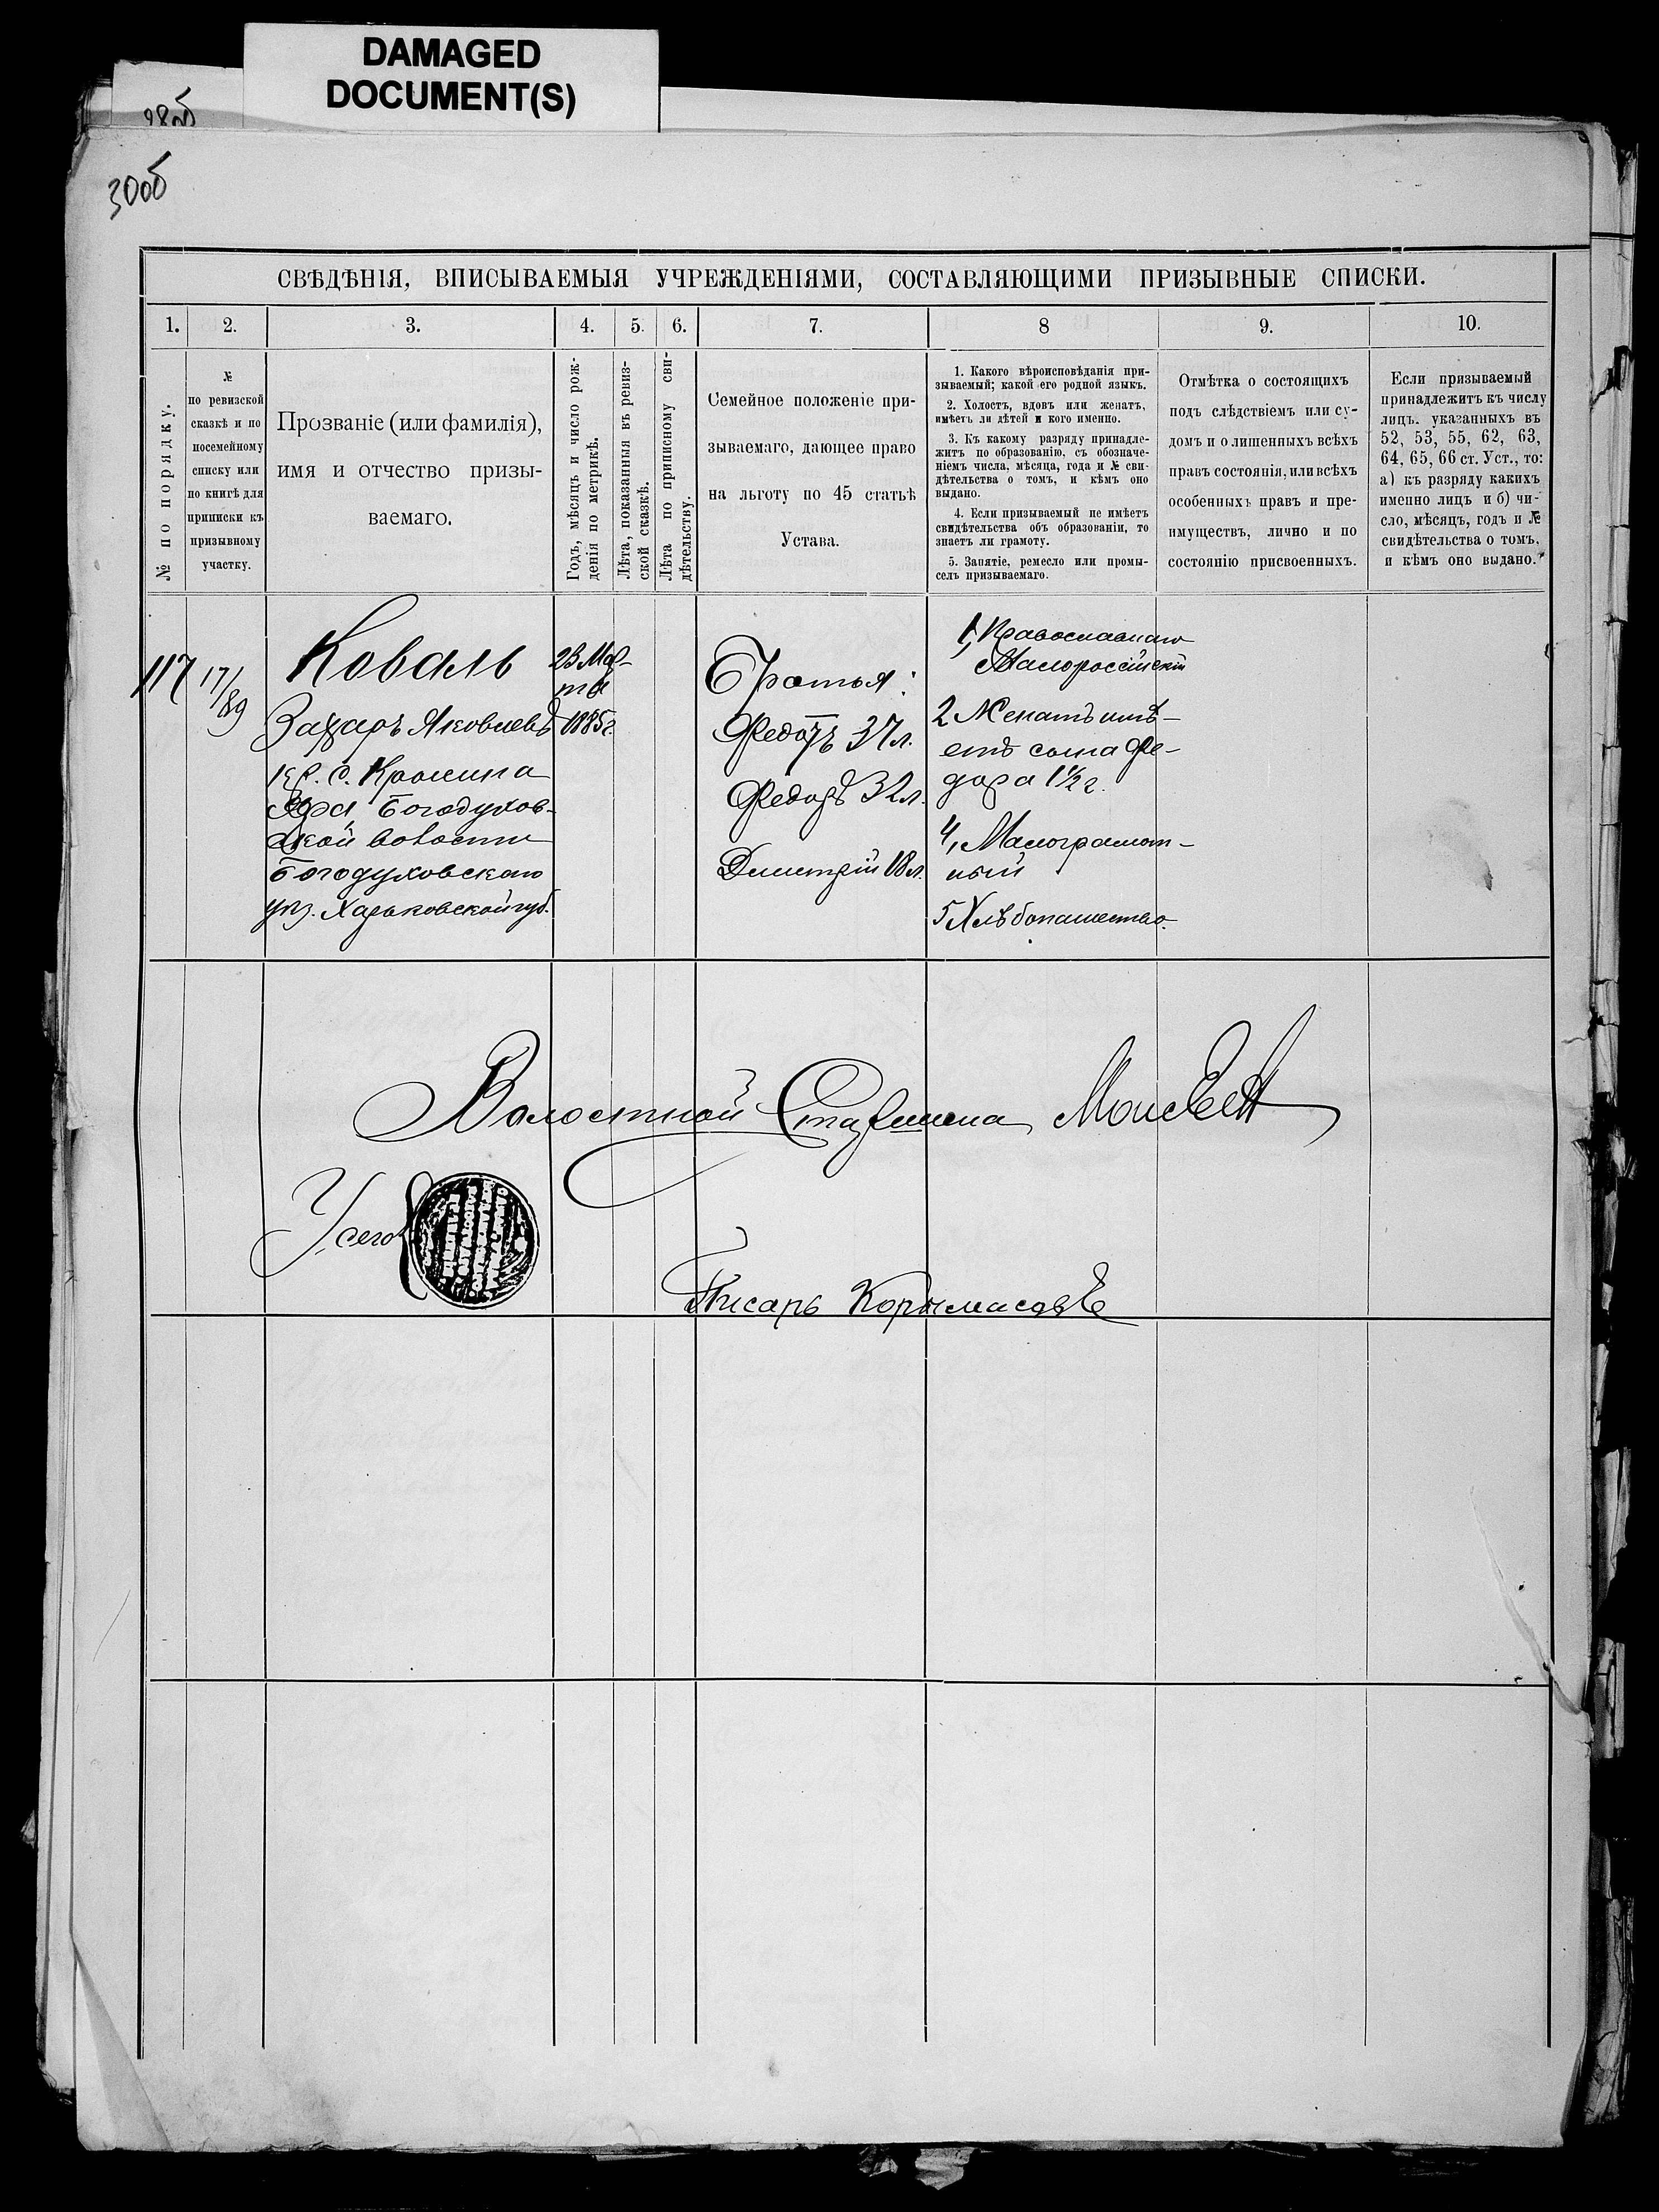 DAMAGED
DOCUMENT(S)
28об
30об
СВѢДѢНІЯ, ВПИСЫВАЕМЫЯ УЧРЕЖДЕНІЯМИ, СОСТАВЛЯЮЩИМИ ПРИЗЫВНЫЕ СПИСКИ.
1. 2. 3. 4. 5. 6. 7. 8 9. 10.
№ по порядку.
№
по ревизской
сказкѣ и по
посемейному
списку или
по книгѣ для
приписки къ
призывному
участку.
Прозваніе (или фамилія),
имя и отчество призы-
ваемаго.
Годъ, мѣсяцъ и число рож-
денія по метрикѣ.
Лѣта, показанныя въ ревиз-
ской сказкѣ.
Лѣта по приписному сви-
дѣтельству.
Семейное положеніе при-
зываемаго, дающее право
на льготу по 45 статьѣ
Устава.
1. Какого вѣроисповѣданія при-
зываемый; какой его родной языкъ.
2. Холостъ, вдовъ или женатъ,
имѣетъ ли дѣтей и кого именно.
3. Къ какому разряду принадле-
житъ по образованію, съ обозначе-
ніемъ числа, мѣсяца, года и № сви-
дѣтельства о томъ, и кѣмъ оно
выдано.
4. Если призываемый не имѣетъ
свидѣтельства объ образованіи, то
знаетъ ли грамоту.
5. Занятіе, ремесло или промы-
селъ призываемаго.
Отмѣтка о состоящихъ
подъ слѣдствіемъ или су-
домъ и о лишенныхъ всѣхъ
правъ состоянія, или всѣхъ
особенныхъ правъ и пре-
имуществъ, лично и по
состоянію присвоенныхъ.
Если призываемый
принадлежитъ къ числу
лицъ. указанныхъ въ
52, 53, 55, 62, 63,
64, 65, 66 ст. Уст., то:
а) къ разряду какихъ
именно лицъ и б) чи-
сло, мѣсяцъ, годъ и №
свидѣтельства о томъ,
и кѣмъ оно выдано.
117
17/89
Коваль
Захаръ Яковлевъ
кр. с. Кропина
Яра, Богодухов-
ской волости
Богодуховскаго
уѣз. Харьковской губ.
23 Мар-
та
1885г.
Братья:
Федотъ 37 л.
Федоръ 32 л.
Дмитрій 18 л.
1, Православнаго
Малороссійскій
2 Женатъ имѣ-
етъ сына Фе-
дора 1 1/2 г.
4, Малограмот-
ный
5 Хлѣбопашество.
Волостной Старшина
Писарь